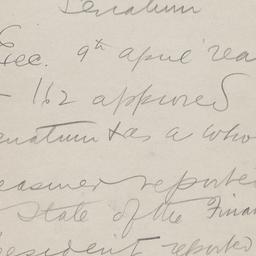 Senatum
Sec. 9th april rea
- 162 approved
enatum & as a who
easurer reported
State of the Finan
esident reported